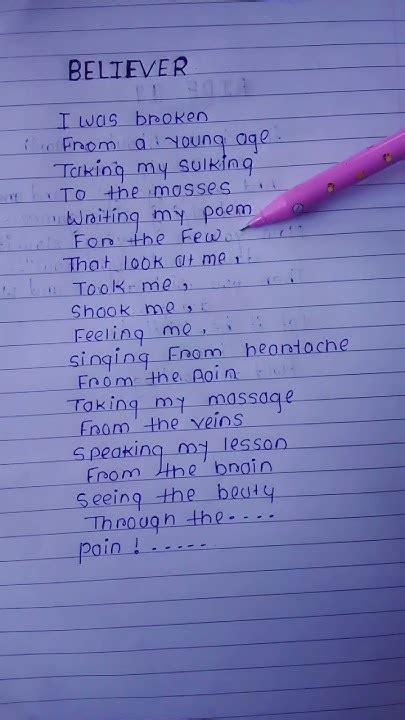 BELIEVER
I was broken
From a young age.
Taking my sulking
To the masses
Writing my poem
For the Few
That look at me,
Took me,
Shook me,
Feeling me,
singing From heartache
From the pain
Taking my massage
From the veins
Speaking my lesson
From the brain
Seeing the beuty
Through the....
pain ! .....